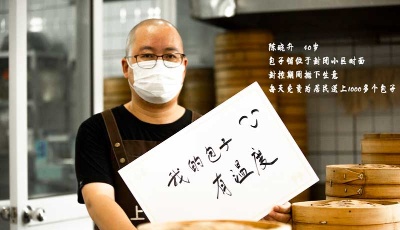 陈晓升 40岁
包子铺位于封闭小区对面
封控期间抛下生意
每天免费为居民送上1000多个包子
我的包子
有温度
上